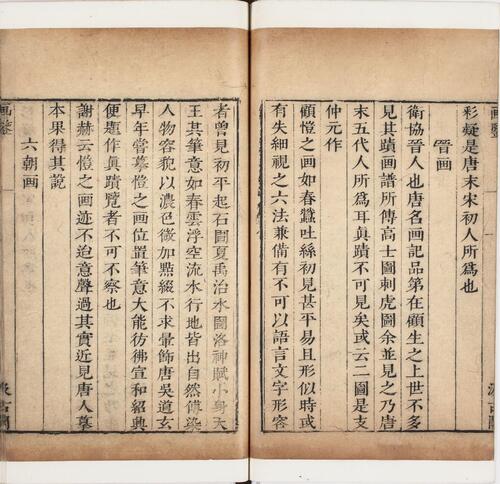 画鑒
汲古閣
彩疑是唐末宋初人所爲也
晉画
衛協晉人也唐名画記品第在顧生之上世不多
見其蹟画譜所傳高士圖刺虎圖余並見之乃唐
末五代人所爲耳眞蹟不可見矣或云二圖是支
仲元作
顧愷之画如春蠶吐絲初見甚平易且形似時或
有失細視之六法兼備有不可以語言文字形容
者曾見初平起石圖夏禹治水圖洛神賦小身天
王其筆意如春雲浮空流水行地皆出自然傅染
人物容貌以濃色微加點綴不求暈飾唐吳道玄
早年嘗摹愷之画位置筆意大能彷彿宣和紹興
便題作眞蹟覽者不可不察也
謝赫云愷之画迹不迨意聲過其實近見唐人摹
本果得其說
六朝画
画鑒
汲古閣